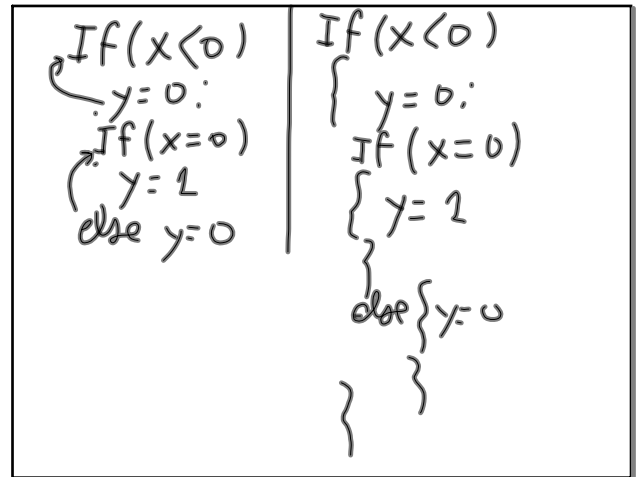 If(x<0)
y=0;
If(x=0)
y=1
else y=0
If(x<0)
{
y=0;
If(x=0)
{ y=1
}
else {y=0
}
}